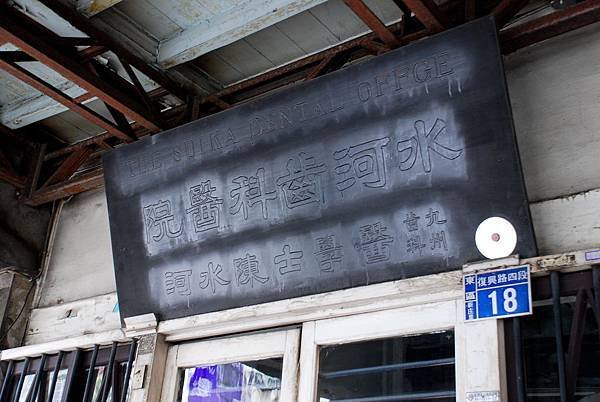 THE SUIKA DENTAL OFFICE
水河齒科醫院
九州齒科醫學士陳水河
東區
復興路四段
18